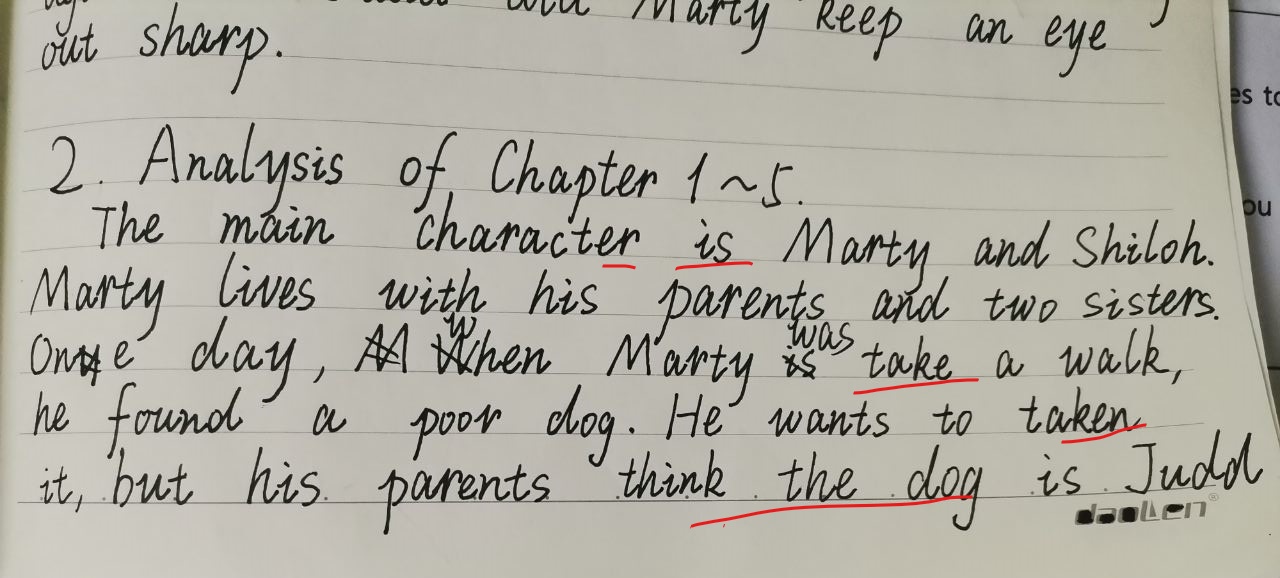 Marty keep an eye
out sharp.
2. Analysis of Chapter 1~5.
The main character is Marty and Shiloh.
Marty lives with his parents and two sisters.
One day, when Marty was take a walk,
he found a poor dog. He wants to taken
it, but his parents think the dog is Judd
es to
ou